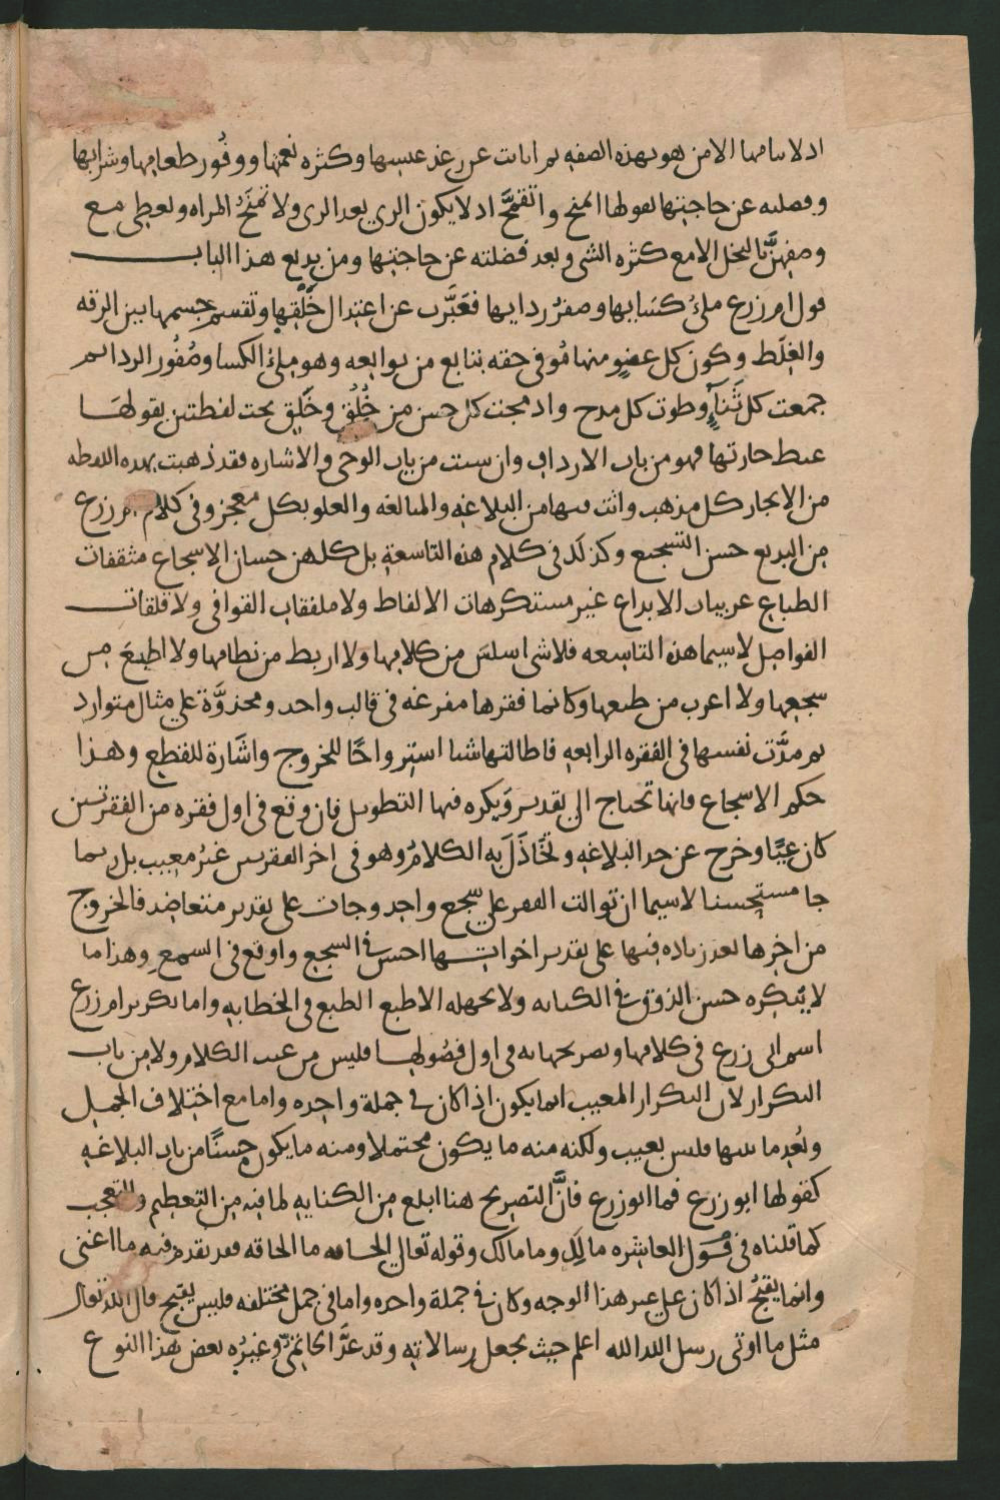 اذ لا ينامها الا من هو بهذه الصفه ثم ابانت عن رغد عيشها وكثره نعمها ووفور طعامها وشرابها
وفضله عن حاجتها بقولها امنح واتقمح اذ لا يكون الري بعد الري ولا تمنح المراه وتعطي مع
وصفهن بالبخل الا مع كثره الشي وبعد فضلته عن حاجتها ومن بديع هذا الباب
قول ام زرع ملئ كسايها وصفر ردايها فعبرت عن اعتدال خلقها وتقسم جسمها بين الرقه
والغلظ وكون كل عضو منها موفى حقه بتابع من توابعه وهو ملئ الكسا وصفور الردا ثم
جمعت كل ثناء وطوت كل مدح وادمجت كل حسن من خُلُق وخَلق تحت لفظتين بقولها
غيظ جارتها فهو من باب الارداف وان شيت من باب الوحي والاشاره فقد ذهبت بهذه اللفظه
من الايجاز كل مذهب واتت فيها من البلاغه والمبالغه والغلو بكل معجز وفي كلام ام زرع
من البديع حسن التسجيع وكذلك في كلام هذه التاسعة بل كلهن حسان الاسجاع مثقفات
الطباع غريبات الابداع غير مستكرهات الالفاظ ولا ملفقات القوافي ولا قلقات
الفواصل لاسيما هذه التاسعه فلا شي اسلس من كلامها ولا اربط من نظامها ولا اطبع من
سجعها ولا اغرب من طبعها وكانما فقرها مفرغه في قالب واحد ومحذوَّة على مثال متوارد
ثم مدَّت نفسها في الفقره الرابعه فاطالتها شيا استرواحًا للخروج واشارة للقطع وهذا
حكم الاسجاع فانها تحتاج الى تقدير ويكره فيها التطويل فان وقع في اول فقره من الفقرتين
كان عيًّا وخرج عن حد البلاغه وتخاذَلَ به الكلامُ وهو في اخر الفقرتين غيرُ معيب بل ربما
جا مستحسنا لاسيما ان توالت الفقر على سجع واحد وجات على تقدير متعاضد فالخروج
من اخرها بعد زياده فيها على تقدير اخواتها احسن في السجع واوقع في السمع وهذا ما
لا ينكره حسن الذوق في الكتابه ولا يجهله الا طبع الطبع في الخطابه واما تكرير ام زرع
اسم ابي زرع في كلامها وتصريحها به في اول فصولها فليس من عيب الكلام ولا من باب
التكرار لان التكرار المعيب انما يكون اذا كان في جملة واحده واما مع اختلاف الجمل
وبُعد ما بينها فليس بعيب ولكنه منه ما يكون محتملا ومنه ما يكون حسنًا من باب البلاغه
كقولها ابو زرع فما ابو زرع فانَّ التصريح هنا ابلغ من الكنايه لما فيه من التعظيم والتعجب
كما قلناه في قول العاشره مالك وما مالك وقوله تعالى الحاقه ما الحاقه فقد تقدم فيه ما اغنى
وانما يقبحُ اذا كان على غير هذا الوجه وكان في جملة واحده واما في جمل مختلفه فليس يقبح قال الله تعالى
مثل ما اوتي رسل الله الله اعلم حيث يجعل رسالاته وقد عدَّ الحاتميُّ وغيرُه بعض هذا النوع